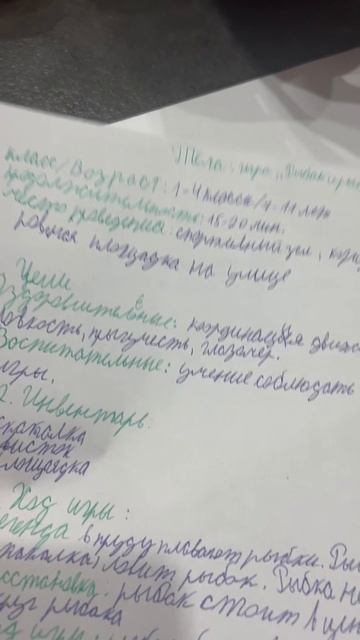 Тема: игра „Рыбак и рыбки
Класс/Возраст: 1-4 класса/7-11 лет
Продолжительность: 15-20 мин.
Место проведения: спортивный зал,
ровная площадка на улице
Цели
Оздоровительные: координация движе
ловкость, прыгучесть, глазомер.
Воспитательные: умение соблюдать
игры.
2. Инвентарь.
скакалка
свисток
площадка
Ход игры:
Легенда в пруду плавают рыбки. Ры
скакалка) ловит рыбок. Рыбка не
Расстановка: рыбак стоит в це
круг рыбака